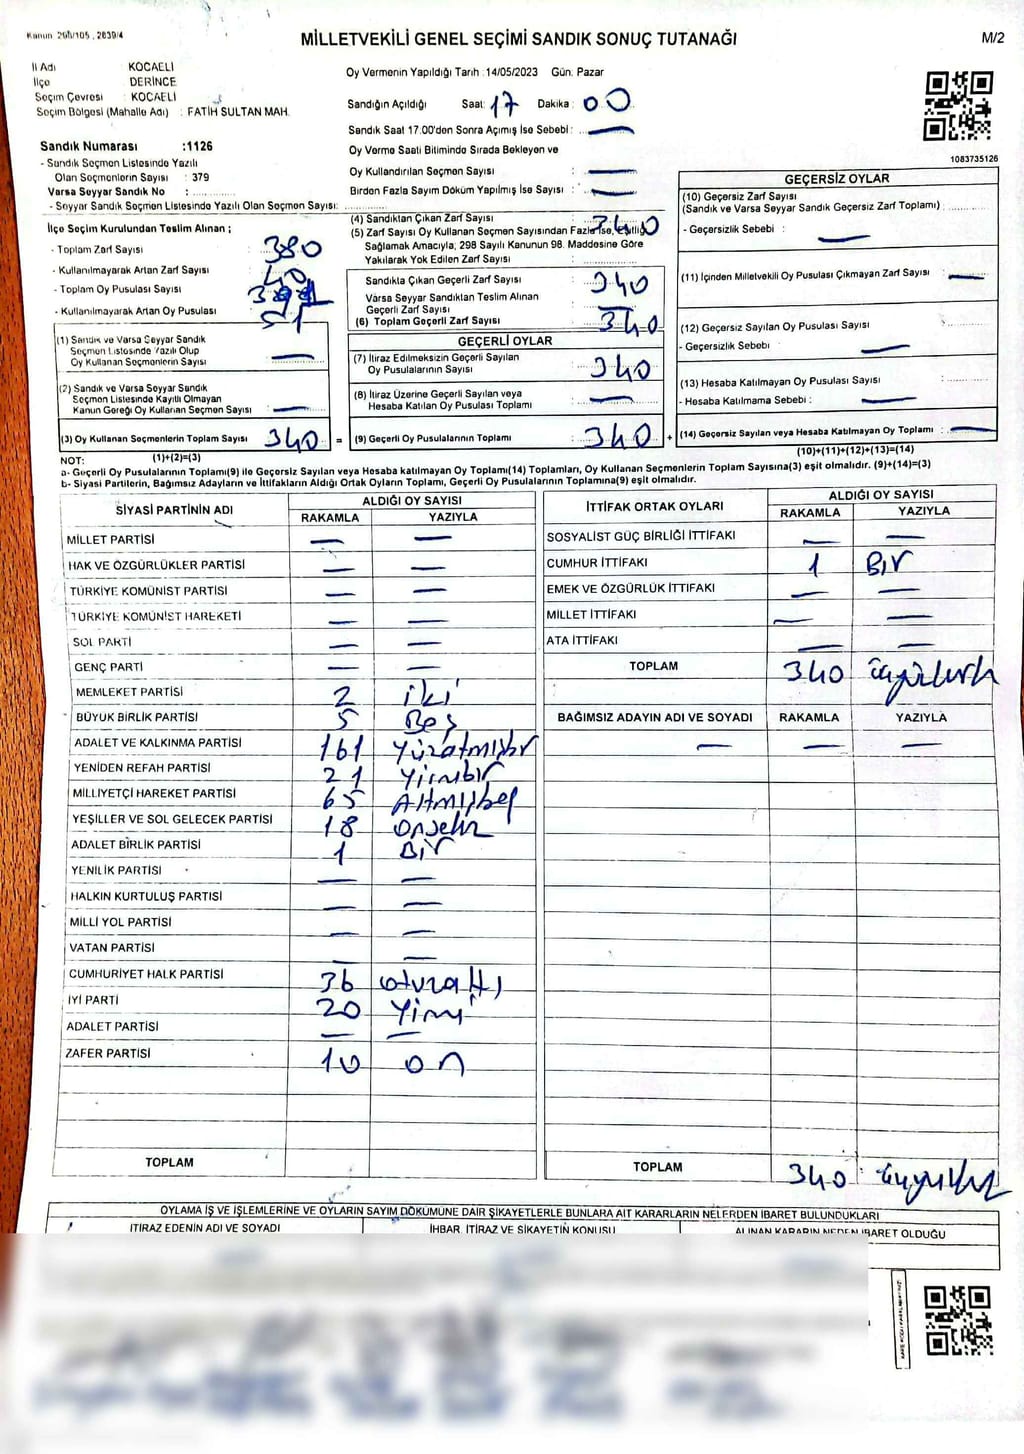 Kanun 298/105, 2839/4
MİLLETVEKİLİ GENEL SEÇİMİ SANDIK SONUÇ TUTANAĞI
M/2
İl Adı KOCAELİ
İlçe DERİNCE
Seçim Çevresi : KOCAELİ
Seçim Bölgesi (Mahalle Adı) : FATİH SULTAN MAH.
Sandık Numarası :1126
- Sandık Seçmen Listesinde Yazılı
Olan Seçmenlerin Sayısı : 379
Varsa Seyyar Sandık No :
- Seyyar Sandık Seçmen Listesinde Yazılı Olan Seçmen Sayısı:
İlçe Seçim Kurulundan Teslim Alınan ;
- Toplam Zarf Sayısı 380
- Kullanılmayarak Artan Zarf Sayısı 40
- Toplam Oy Pusulası Sayısı
- Kullanılmayarak Artan Oy Pusulası 51
(1) Sandık ve Varsa Seyyar Sandık
Seçmen Listesinde Yazılı Olup
Oy Kullanan Seçmenlerin Sayısı —
(2) Sandık ve Varsa Seyyar Sandık
Seçmen Listesinde Kayıtlı Olmayan
Kanun Gereği Oy Kullanan Seçmen Sayısı —
(3) Oy Kullanan Seçmenlerin Toplam Sayısı 340 =
(1)+(2)=(3)
Oy Vermenin Yapıldığı Tarih :14/05/2023 Gün: Pazar
Sandığın Açıldığı Saat: 17 Dakika : 00
Sandık Saat 17.00'den Sonra Açılmış İse Sebebi : —
Oy Verme Saati Bitiminde Sırada Bekleyen ve
Oy Kullandırılan Seçmen Sayısı : —
Birden Fazla Sayım Döküm Yapılmış İse Sayısı : —
(4) Sandıktan Çıkan Zarf Sayısı 340
(5) Zarf Sayısı Oy Kullanan Seçmen Sayısından Fazla İse, Eşitliği
Sağlamak Amacıyla; 298 Sayılı Kanunun 98. Maddesine Göre
Yakılarak Yok Edilen Zarf Sayısı :
Sandıkta Çıkan Geçerli Zarf Sayısı : 340
Varsa Seyyar Sandıktan Teslim Alınan
Geçerli Zarf Sayısı : —
(6) Toplam Geçerli Zarf Sayısı : 340
GEÇERLİ OYLAR
(7) İtiraz Edilmeksizin Geçerli Sayılan
Oy Pusulalarının Sayısı : 340
(8) İtiraz Üzerine Geçerli Sayılan veya
Hesaba Katılan Oy Pusulası Toplamı : —
(9) Geçerli Oy Pusulalarının Toplamı : 340 +
1083735126
GEÇERSİZ OYLAR
(10) Geçersiz Zarf Sayısı
(Sandık ve Varsa Seyyar Sandık Geçersiz Zarf Toplamı) :
- Geçersizlik Sebebi : —
(11) İçinden Milletvekili Oy Pusulası Çıkmayan Zarf Sayısı : —
(12) Geçersiz Sayılan Oy Pusulası Sayısı :
- Geçersizlik Sebebi : —
(13) Hesaba Katılmayan Oy Pusulası Sayısı :
- Hesaba Katılmama Sebebi : —
(14) Geçersiz Sayılan veya Hesaba Katılmayan Oy Toplamı : —
(10)+(11)+(12)+(13)=(14)
NOT:
a- Geçerli Oy Pusulalarının Toplamı(9) ile Geçersiz Sayılan veya Hesaba katılmayan Oy Toplamı(14) Toplamları, Oy Kullanan Seçmenlerin Toplam Sayısına(3) eşit olmalıdır. (9)+(14)=(3)
b- Siyasi Partilerin, Bağımsız Adayların ve İttifakların Aldığı Ortak Oyların Toplamı, Geçerli Oy Pusulalarının Toplamına(9) eşit olmalıdır.
SİYASİ PARTİNİN ADI ALDIĞI OY SAYISI
RAKAMLA YAZIYLA
MİLLET PARTİSİ — —
HAK VE ÖZGÜRLÜKLER PARTİSİ — —
TÜRKİYE KOMÜNİST PARTİSİ — —
TÜRKİYE KOMÜNİST HAREKETİ — —
SOL PARTİ — —
GENÇ PARTİ — —
MEMLEKET PARTİSİ 2 iki
BÜYÜK BİRLİK PARTİSİ 5 Beş
ADALET VE KALKINMA PARTİSİ 161 Yüzatmışbir
YENİDEN REFAH PARTİSİ 21 Yirmibir
MİLLİYETÇİ HAREKET PARTİSİ 65 Altmışbeş
YEŞİLLER VE SOL GELECEK PARTİSİ 18 onsekiz
ADALET BİRLİK PARTİSİ 1 Bir
YENİLİK PARTİSİ — —
HALKIN KURTULUŞ PARTİSİ — —
MİLLİ YOL PARTİSİ — —
VATAN PARTİSİ — —
CUMHURİYET HALK PARTİSİ 36 otuzaltı
İYİ PARTİ 20 Yirmi
ADALET PARTİSİ — —
ZAFER PARTİSİ 10 on
TOPLAM
İTTİFAK ORTAK OYLARI ALDIĞI OY SAYISI
RAKAMLA YAZIYLA
SOSYALİST GÜÇ BİRLİĞİ İTTİFAKI — —
CUMHUR İTTİFAKI 1 Bir
EMEK VE ÖZGÜRLÜK İTTİFAKI — —
MİLLET İTTİFAKI — —
ATA İTTİFAKI — —
TOPLAM 340 üçyüzkırk
BAĞIMSIZ ADAYIN ADI VE SOYADI RAKAMLA YAZIYLA
— — —
TOPLAM 340 üçyüzkırk
OYLAMA İŞ VE İŞLEMLERİNE VE OYLARIN SAYIM DÖKÜMÜNE DAİR ŞİKAYETLERLE BUNLARA AİT KARARLARIN NELERDEN İBARET BULUNDUKLARI
İTİRAZ EDENİN ADI VE SOYADI İHBAR, İTİRAZ VE ŞİKAYETİN KONUSU ALINAN KARARIN NEDEN İBARET OLDUĞU